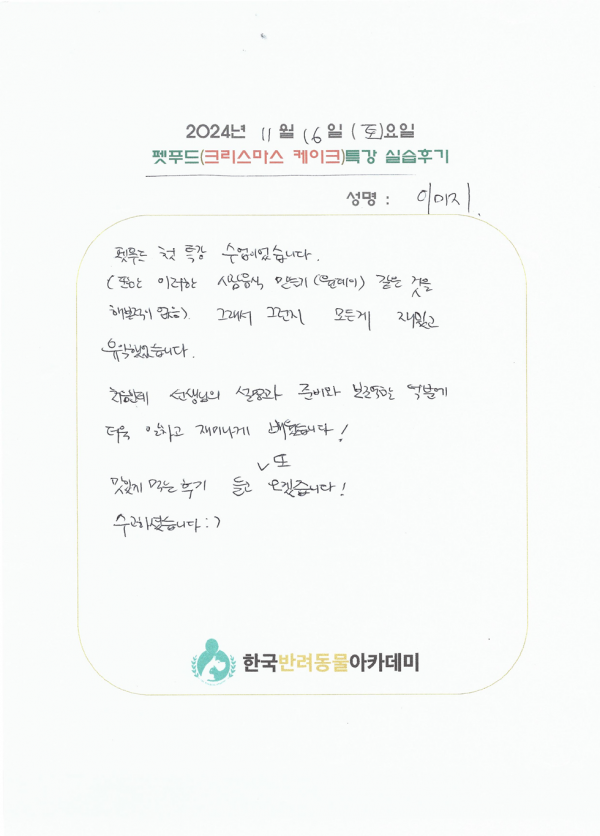 2024년 11월 16일 (토)요일
펫푸드(크리스마스 케이크)특강 실습후기
성명 : 이미지
펫푸드 첫 특강 수업이었습니다.
(또한 이러한 시장음식 만들기 (원데이) 같은 것을
해본적이 없음) 그래서 그런지 모든게 재밌고
유익했었습니다.
선생님의 설명과 준비와 덕분에
더욱 알차고 재미나게 배웠습니다!
또
맛있게 먹는 후기 들고 오겠습니다!
수고하셨습니다 :)
한국반려동물아카데미